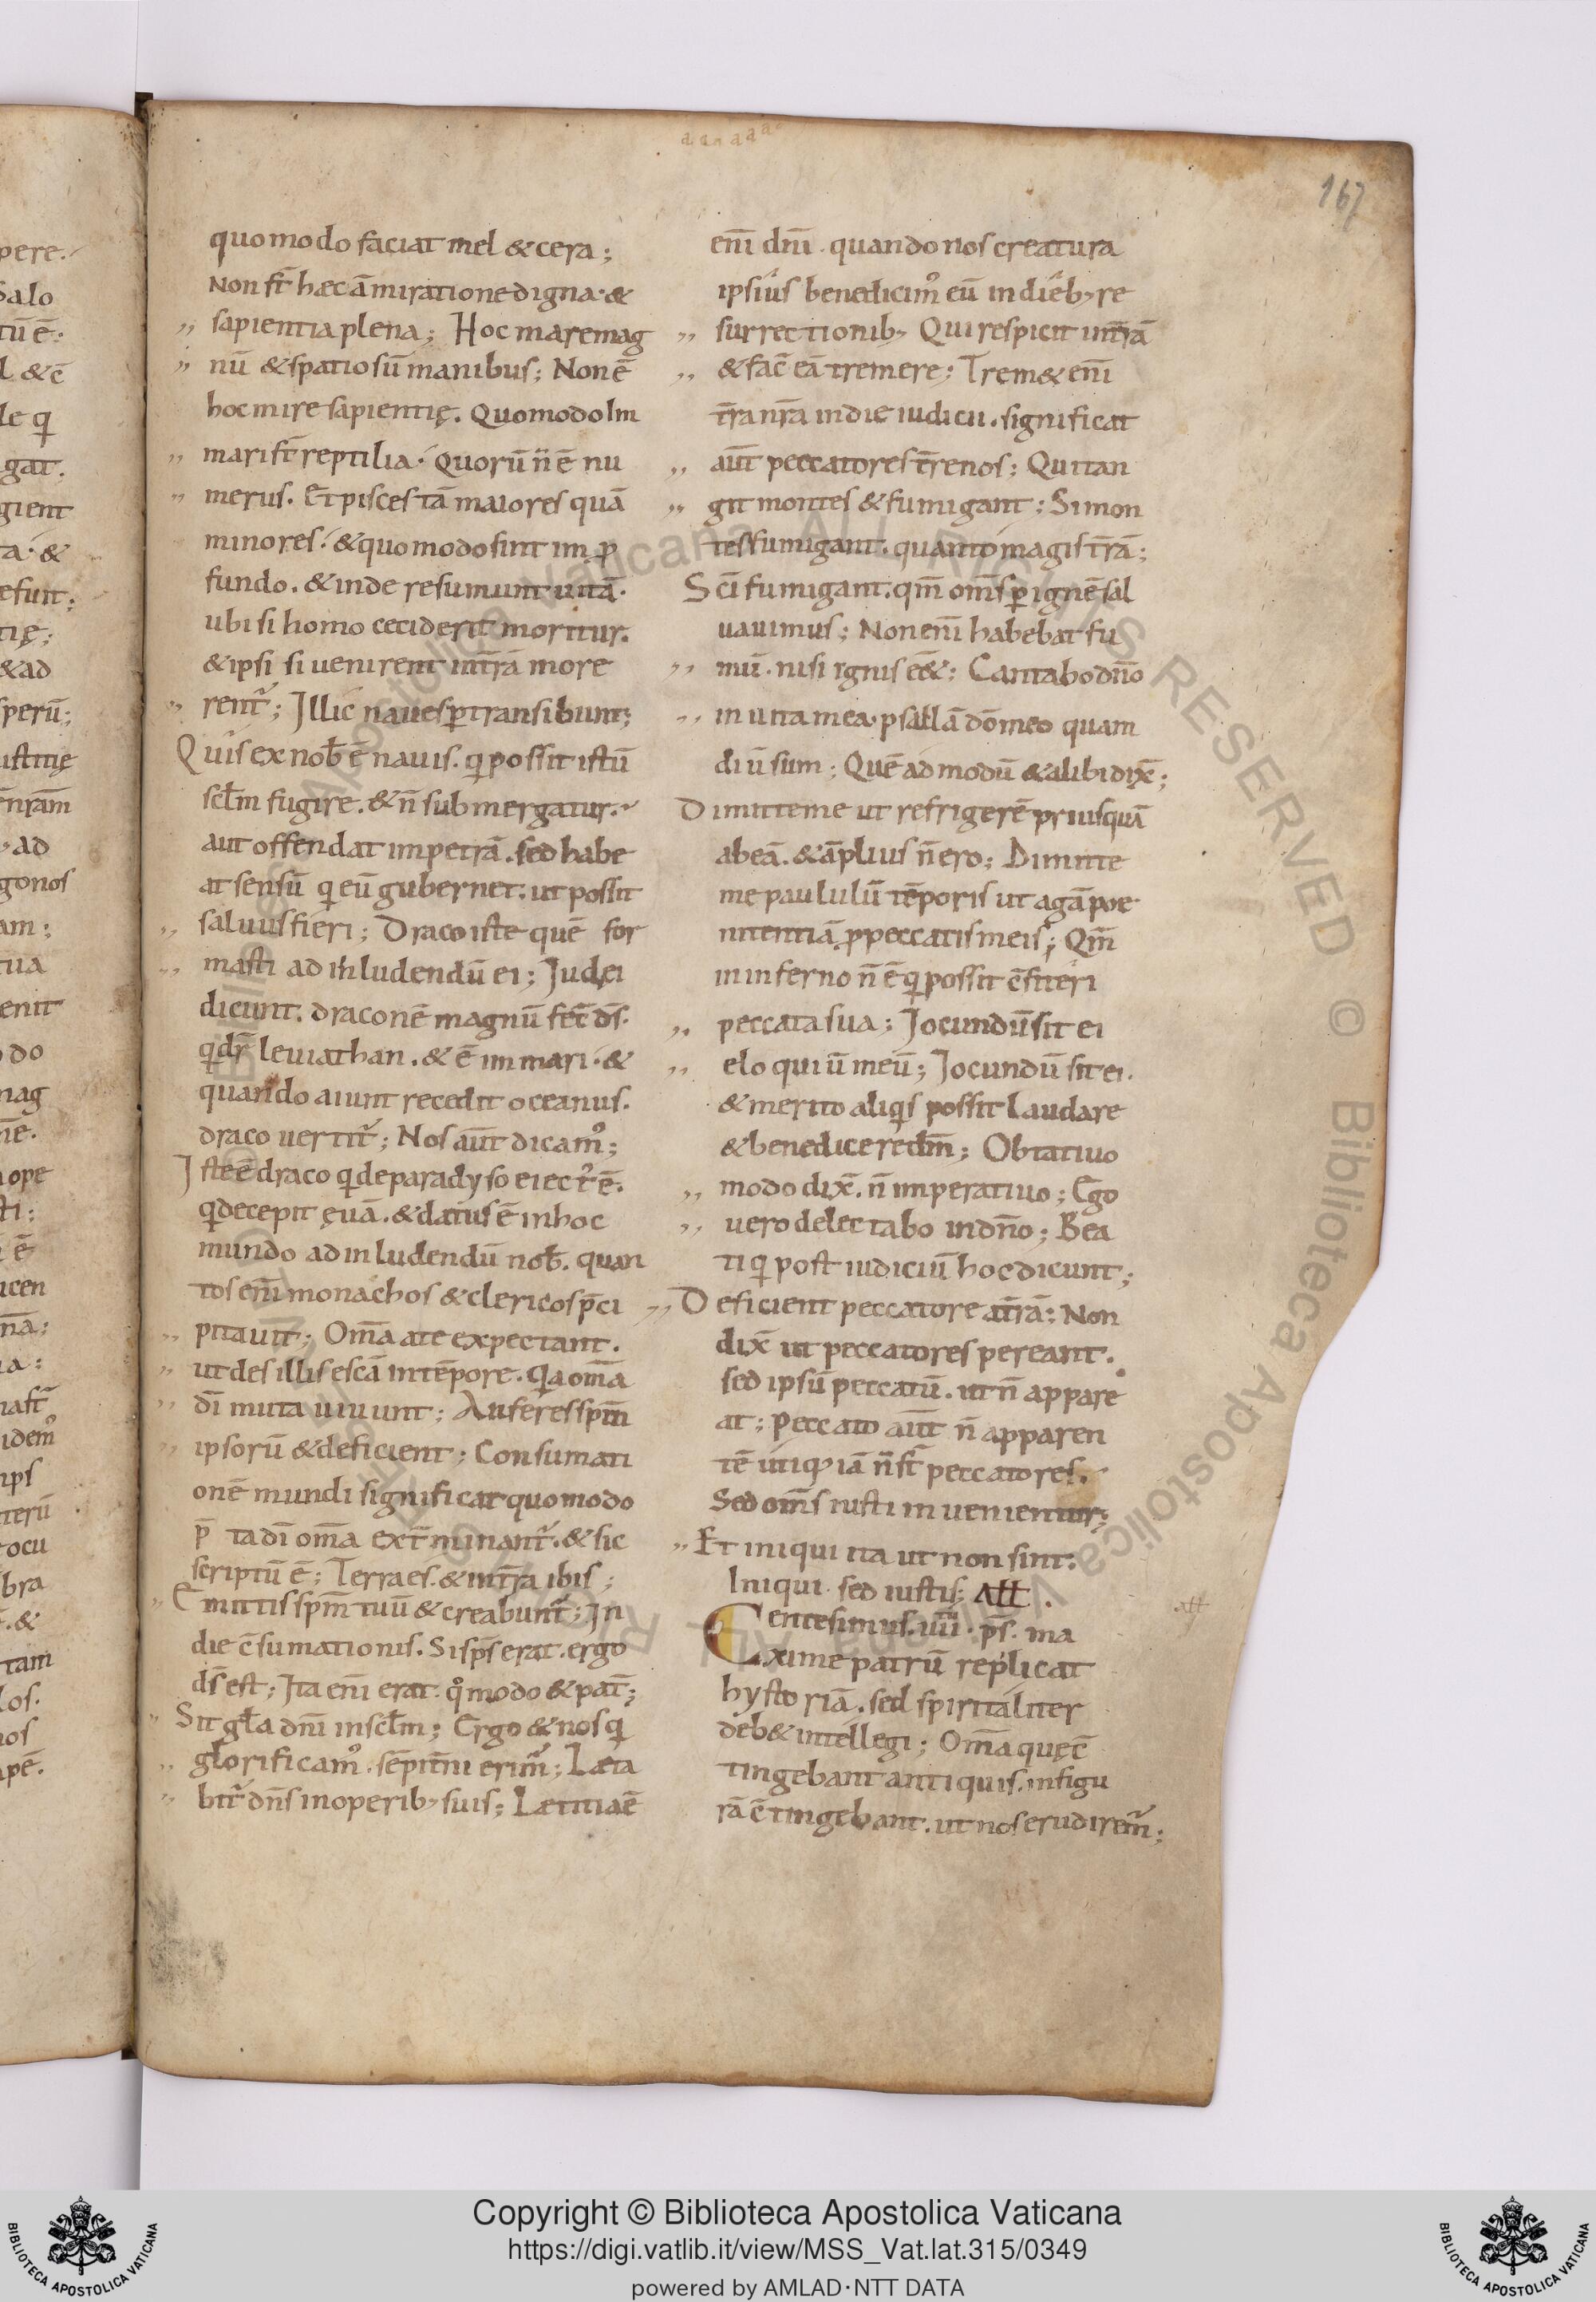 167
quomodo faciat mel & cera;
Non st̄ hæc āmiratione digna· &
sapientia plena; Hoc mare mag
nū & spatiosū manibus; Non ē
hoc mire sapientię. Quomodo Im
mari st̄ reptilia· quorū n̄ ē nu
merus. Et pisces tā maiores quā
minores· & quomodo sint im p̱
fundo. & inde resumunt uitā·
ubi si homo ceciderit moritur.
& ipsi si uenirent int̄rā more
rent᷑; Illic naues ꝑtransibunt;
Quis ex nob̄ ē nauis. qi possit istū
scl̄m fugire. & n̄ submergatur·
aut offendat impetrā. sed habe
at sensū qi eū gubernet. ut possit
saluus fieri; Draco iste quē for
masti ad inludendū ei; Iudei
dicunt. draconē magnū fec̄ ds̄·
qd̄r leuiathan. & ē im mari· &
quando aiunt recedit oceanus.
draco uertit᷑; Nos aut̄ dicam᷒;
Iste ē draco qi de paradyso eiect᷒ ē.
qi decepit ęuā. & datus ē in hoc
mundo ad inludendū nob̄. quan
tos enī monachos & clericos p̄ci
pitauit; Om̄a a te expectant.
ut des illis escā in tēpore. qia om̄a
dī muta uiuunt; Auferes spm̄
ipsorū & deficient; Consumati
onē mundi significat quomodo
p̄ ta dī om̄a ext̄minant᷑. & sic
scriptū ē; Terra es. & int̄ra ibis;
Emittis spm̄ tuū & creabunt᷑; In
die c̄sumationis. Si sps̄ erat. ergo
ds̄ est; Ita enī erat qo modo & pat̄;
Sit gl̄a dnī in scl̄m; Ergo & nos qi
glorificam᷒. sēpit̄ni erim᷒; Læta
bit᷑ dn̄s in operib; suis; Lætitia ē
enī dnī. quando nos creatura
ipsius benedicim᷒ eū in dieb; re
surrectionib; Qui respicit int̄rā
& fac̄ eā tremere; Trem& enī
t̄ra nr̄a in die iudicii. significat
aut̄ peccatores t̄renos; Qui tan
git montes & fumigant; Si mon
tes fumigant. quanto magis t̄rā;
Sc̄i fumigant. qm̄ om̄s ꝑ ignē sal
uauimus; Non enī habebat fu
mū. nisi ignis eē&; Cantabo dn̄o
in uita mea· psallā dō meo quam
diū sum; Quē ad modū & alibi dix̄;
Dimitte me ut refrigerē priusquā
abeā. & āplius n̄ ero; Dimitte
me paululū tēporis ut agā poe
nitentiā p̱ peccatis meis; Qm̄
in inferno n̄ ē qi possit c̄fiteri
peccata sua; Iocundū sit ei
eloquiū meū; Iocundū sit ei.
& merito aliqis possit laudare
& benedicere dm̄; Obtatiuo
modo dix̄. n̄ imperatiuo; Ego
uero delectabo in dn̄o; Bea
ti qi post iudiciū hoc dicunt;
Deficient peccatore at̄rā; Non
dix̄ ut peccatores pereant.
sed ipsū peccatū. ut n̄ appare
at; Peccato aut̄ n̄ apparen
tē utiq; iā n̄ st̄ peccatores.
Sed om̄s iusti inuenientur;
Et iniqui ita ut non sint.
Iniqui sed iustis; Aƚƚ.
Centesimus. iiii. ps̄. ma
xime patrū replicat
hystoriā. sed spiritaliter
deb& intellegi; Om̄a quę c̄
tingebant antiquis. in figu
rā c̄tingebant. ut nos erudirem᷑;
Copyright © Biblioteca Apostolica Vaticana
https://digi.vatlib.it/view/MSS_Vat.lat.315/0349
powered by AMLAD·NTT DATA
BIBLIOTECA APOSTOLICA VATICANA
BIBLIOTECA APOSTOLICA VATICANA